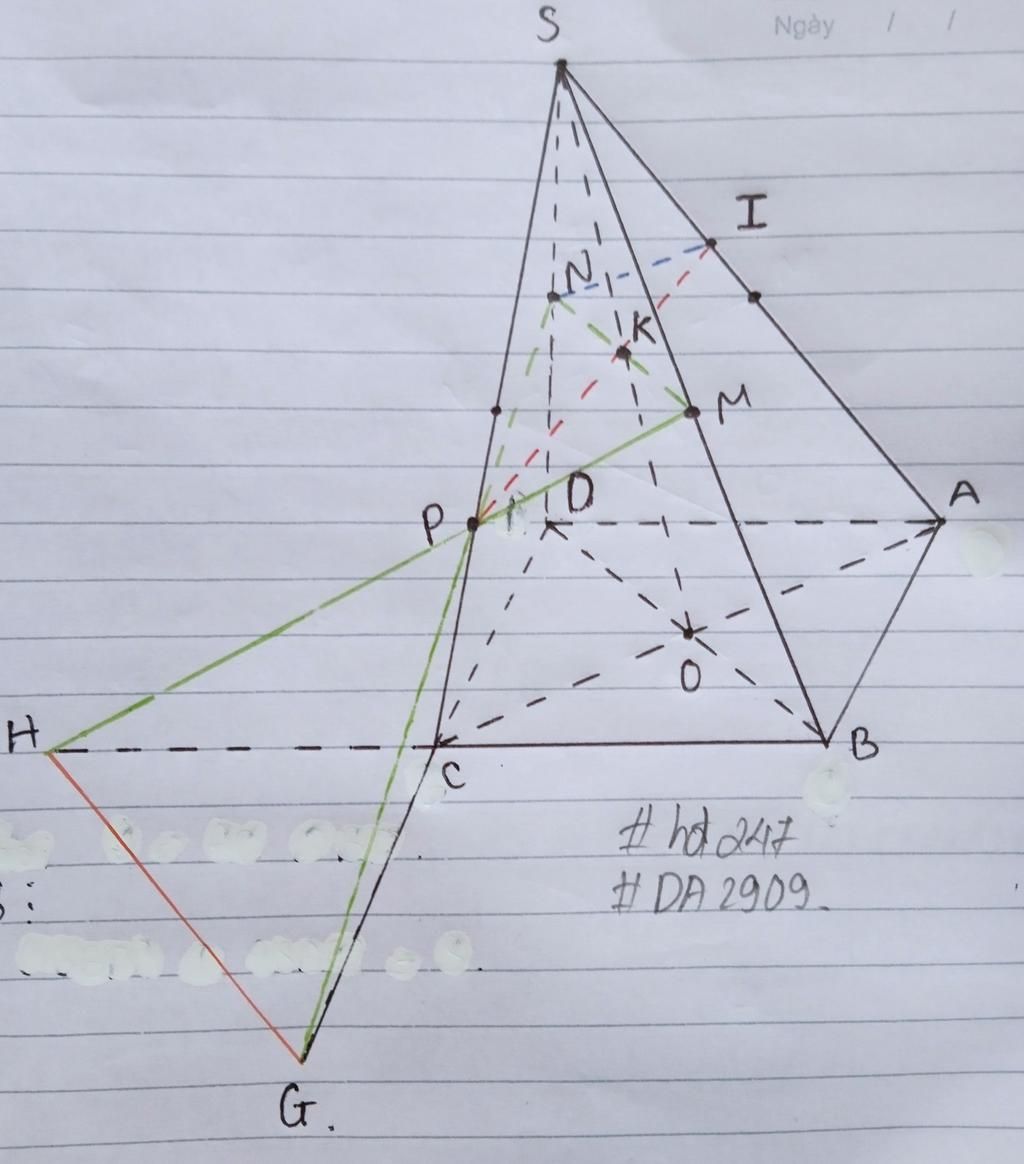 Ngày / /
S
I
N
K
M
A
P
D
O
H
B
C
# hot 247
# DA 2909.
:
G.